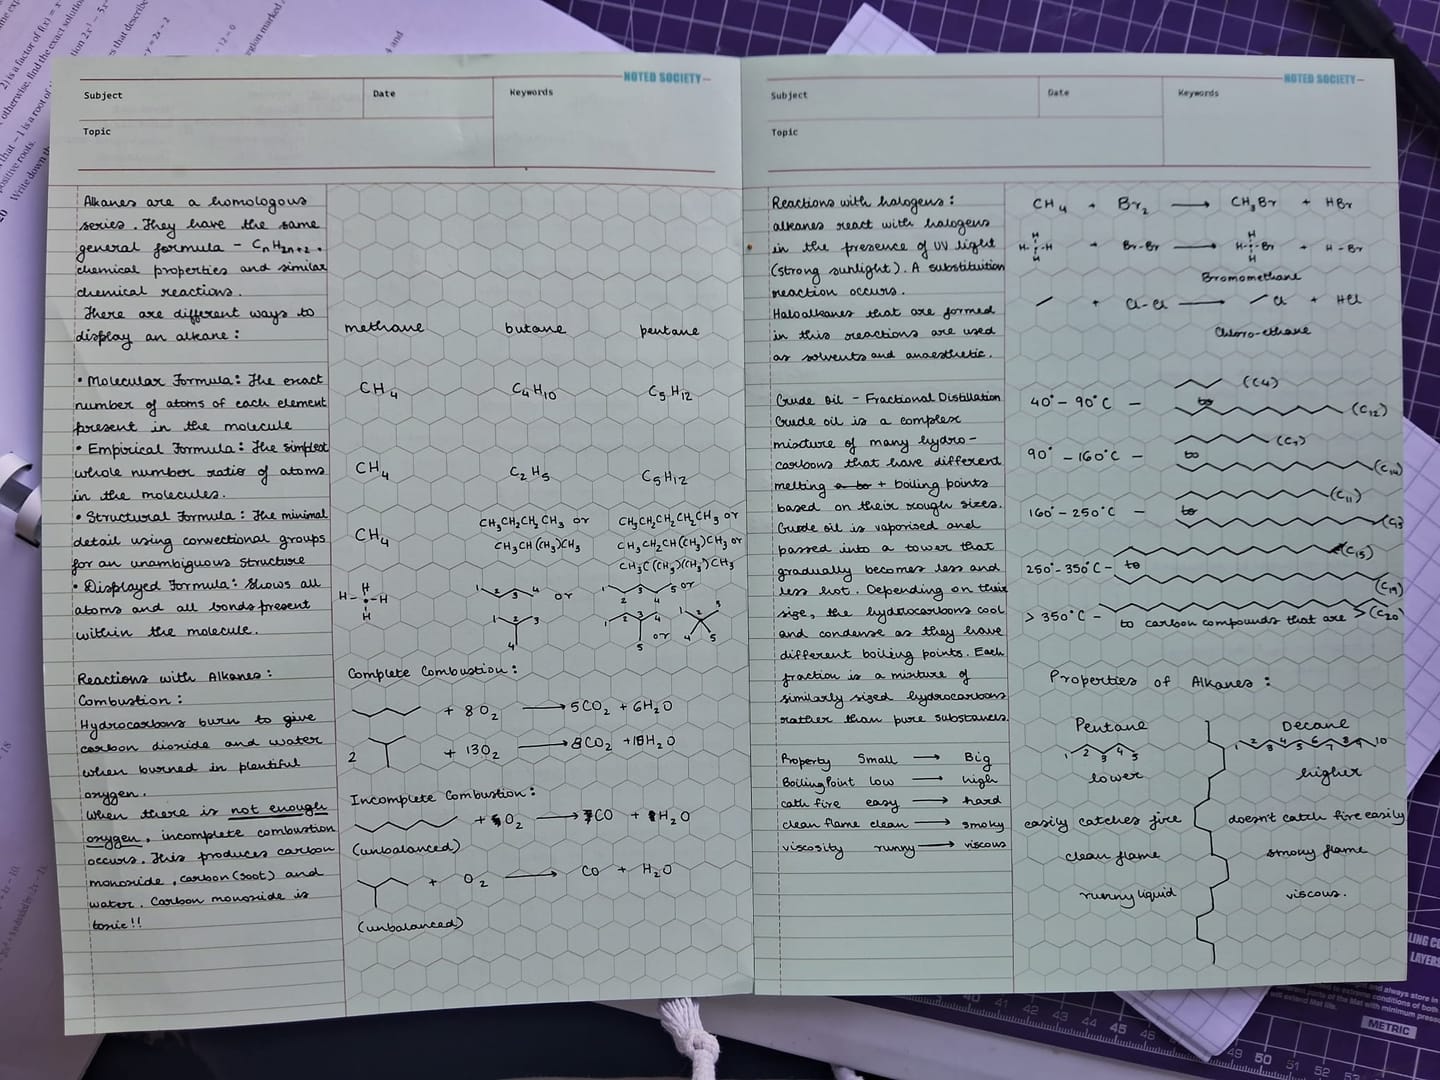 NOTED SOCIETY
Subject
Date
Keywords
Topic
Alkanes are a homologous
series. They have the same
general formula - CnH2n+2.
chemical properties and similar
chemical reactions.
There are different ways to
display an alkane:
• Molecular Formula: The exact
number of atoms of each element
present in the molecule
• Empirical Formula: The simplest
whole number ratio of atoms
in the molecules.
• Structural Formula: The minimal
detail using convectional groups
for an unambiguous structure
• Displayed Formula: Shows all
atoms and all bonds present
within the molecule.
Reactions with Alkanes:
Combustion:
Hydrocarbons burn to give
carbon dioxide and water
when burned in plentiful
oxygen.
When there is not enough
oxygen, incomplete combustion
occurs. This produces carbon
monoxide, carbon (soot) and
water. Carbon monoxide is
toxic!!
methane butane pentane
CH4 C4H10 C5H12
CH4 C2H5 C5H12
CH4 CH3CH2CH2CH3 or CH3CH2CH2CH2CH3 or
CH3CH(CH3)CH3 CH3CH2CH(CH3)CH3 or
CH3C(CH3)(CH3)CH3
H
H - C - H
H
1 2 3 4 or 1 2 3 4 5 or
1 2 3 4 1 2 3 4 5 or 1 2 3 4 5
Complete Combustion:
+ 8O2 → 5CO2 + 6H2O
2 + 13O2 → 8CO2 + 10H2O
Incomplete Combustion:
+ O2 → 7CO + H2O
(unbalanced)
+ O2 → CO + H2O
(unbalanced)
NOTED SOCIETY
Subject
Date
Keywords
Topic
Reactions with halogens:
alkanes react with halogens
in the presence of UV light
(strong sunlight). A substituition
reaction occurs.
Haloalkanes that are formed
in this reactions are used
as solvents and anaesthetic.
Crude Oil - Fractional Distillation
Crude oil is a complex
mixture of many hydro-
carbons that have different
melting + boiling points
based on their rough sizes.
Crude oil is vaporised and
passed into a tower that
gradually becomes less and
less hot. Depending on their
size, the hydrocarbons cool
and condense as they have
different boiling points. Each
fraction is a mixture of
similarly sized hydrocarbons
rather than pure substances.
Property Small → Big
Boiling Point low → high
cath fire easy → hard
clean flame clean → smoky
viscosity runny → viscous
CH4 + Br2 → CH3Br + HBr
H
H - C - H + Br-Br → H - C - Br + H - Br
H
Bromomethane
+ Cl-Cl → Cl + HCl
Chloro-ethane
40° - 90°C - (C4)
to (C12)
90° - 160°C - (C7)
to (C14)
160° - 250°C - (C11)
to
250° - 350°C - (C15)
to (C19)
> 350°C - to carbon compounds that are > (C20
Properties of Alkanes:
Pentane Decane
1 2 3 4 5 1 2 3 4 5 6 7 8 9 10
lower higher
easily catches fire doesn't catch fire easily
clean flame smoky flame
runny liquid viscous.
METRIC